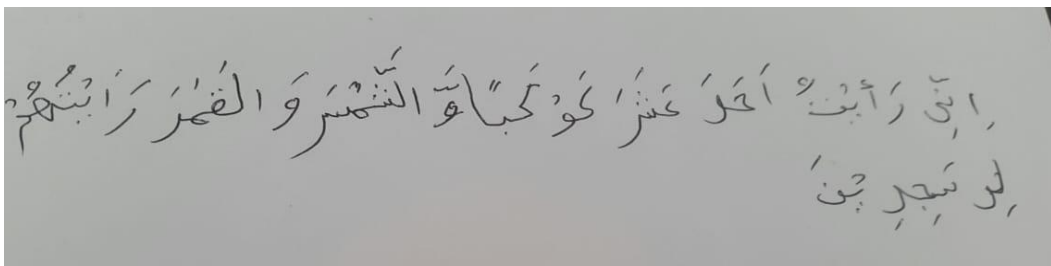 اِنِّي رَأَيْتُ اَحَدَ عَشَرَ كَوْكَبًا وَّ الشَّمْسَ وَ الْقَمَرَ رَاَيْتُهُمْ
لِى سٰجِدِيْنَ